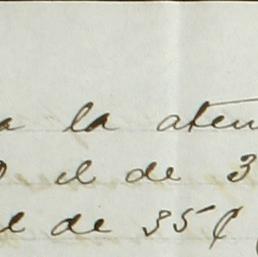 a la aten
el de 3
el de 35¢